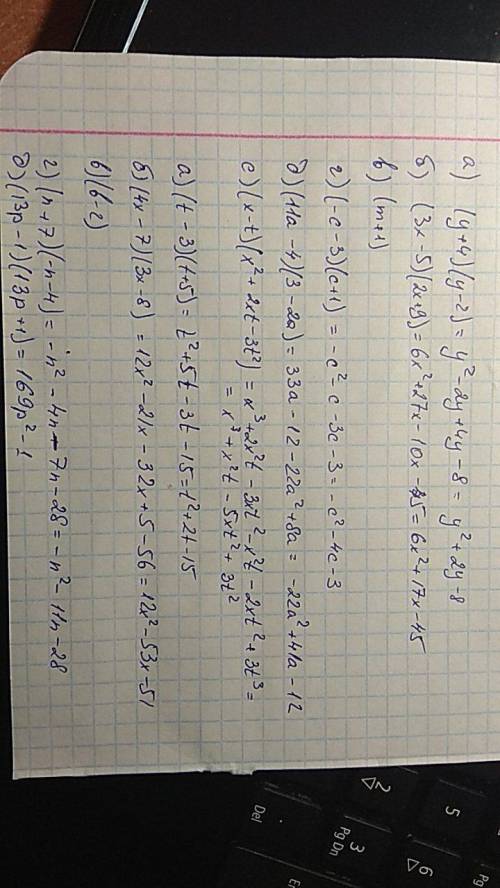 а) (y+4)(y-2) = y²-2y+4y-8 = y²+2y-8
б) (3x-5)(2x+9) = 6x²+27x-10x-45 = 6x²+17x-45
в) (m+1)
г) (-c-3)(c+1) = -c²-c-3c-3 = -c²-4c-3
д) (11a-4)(3-2a) = 33a-12-22a²+8a = -22a²+41a-12
с) (x-t)(x²+2xt-3t²) = x³+2x²t-3xt²-x²t-2xt²+3t³ =
= x³+x²t-5xt²+3t²
а) (t-3)(t+5) = t²+5t-3t-15 = t²+2t-15
б) (4x-7)(3x-8) = 12x²-21x-32x+5-56 = 12x²-53x-51
в) (b-2)
г) (n+7)(-n-4) = -n²-4n-7n-28 = -n²-11n-28
д) (13p-1)(13p+1) = 169p²-1
5
6
2
3
PgDn
Del